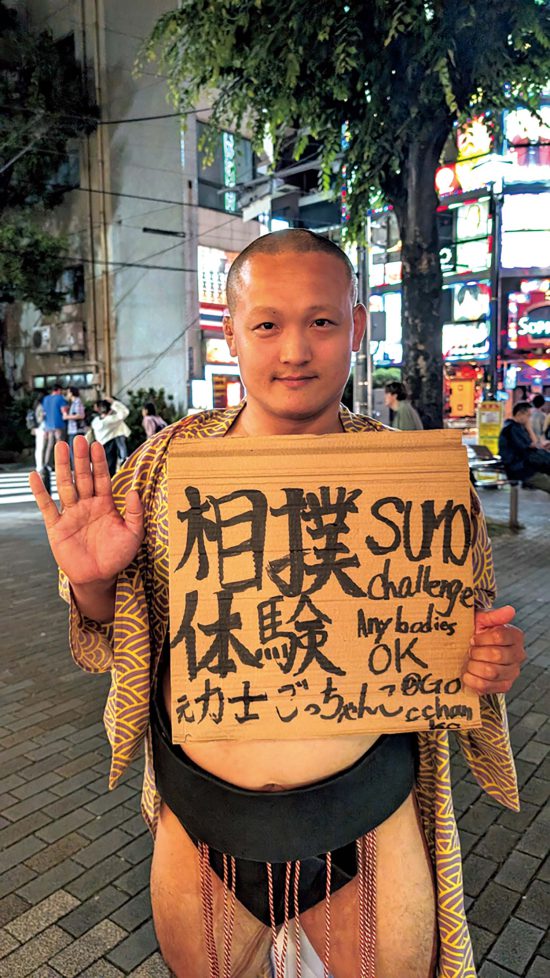 相撲
体験
元力士ごっちゃんこ
SUMO
challenge
Any bodies
OK
@Go
cchan